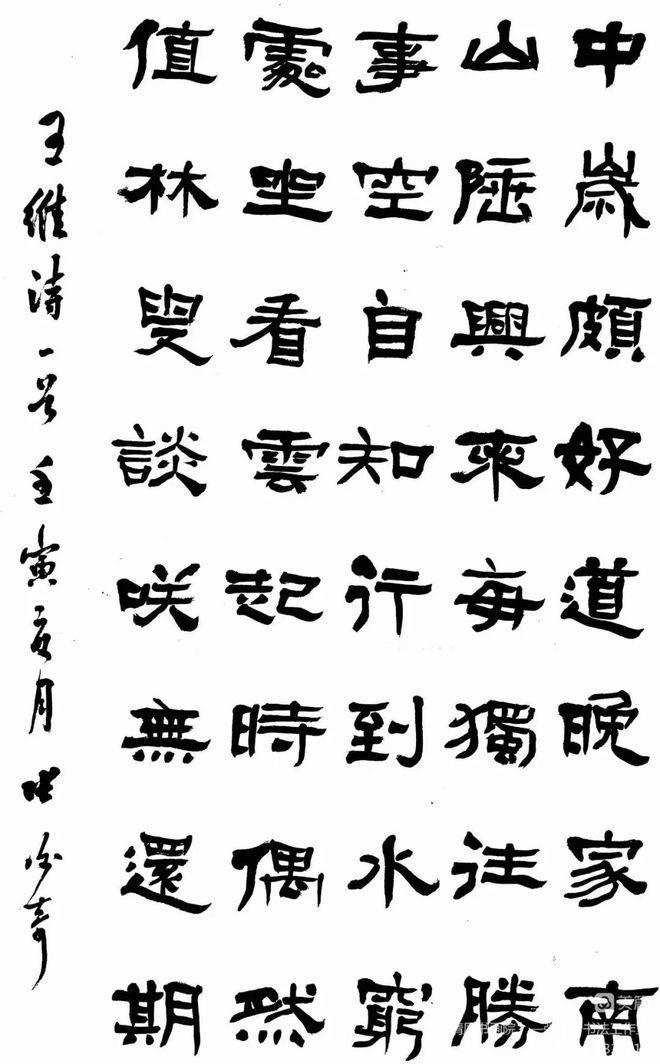 中歲頗好道晚家南
山陲興來每獨往勝
事空自知行到水窮
處坐看雲起時偶然
值林叟談咲無還期
王維詩一首壬寅亥月